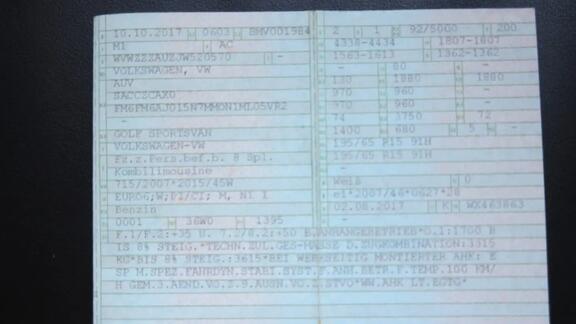 10.10.2017 0603 BMV001984 2 1 92/5000 200
M1 AC 4338-4434 1807-1807
WVWZZZAUZJW520570 - 1563-1613 1362-1362
VOLKSWAGEN, VW - 80 -
AUV 130 1880 1880
SACCZCAX0 970 960 -
FM6FM6AJ015N7MMON1ML05VR2 970 960 -
- 74 3750 72
GOLF SPORTSVAN 1400 680 5 -
VOLKSWAGEN-VW 195/65 R15 91H
Fz.z.Pers.bef.b. 8 Spl. 195/65 R15 91H
Kombilimousine -
715/2007*2015/45W Weiß 0
EURO6;W;PI/CI; M, N1 I e1*2007/46*0627*28
Benzin 02.08.2017 K WX463863
0001 36W0 1395
F.1/F.2:+35 U. 7.2/8.2:+50 B.ANHANGEBETRIEB*O.1:1700 B
IS 8% STEIG.*TECHN.ZUL.GES-MASSE D.ZUGKOMBINATION:3315
KG*BIS 8% STEIG.:3615*BEI WERKSEITIG MONTIERTER AHK: E
SP M.SPEZ.FAHRDYN.STABI.SYST.F.ANH.BETR.F.TEMP.100 KM/
H GEM.3.AEND.VO.Z.9.AUSN.VO.Z.STVO*WW.AHK LT.EGTG*